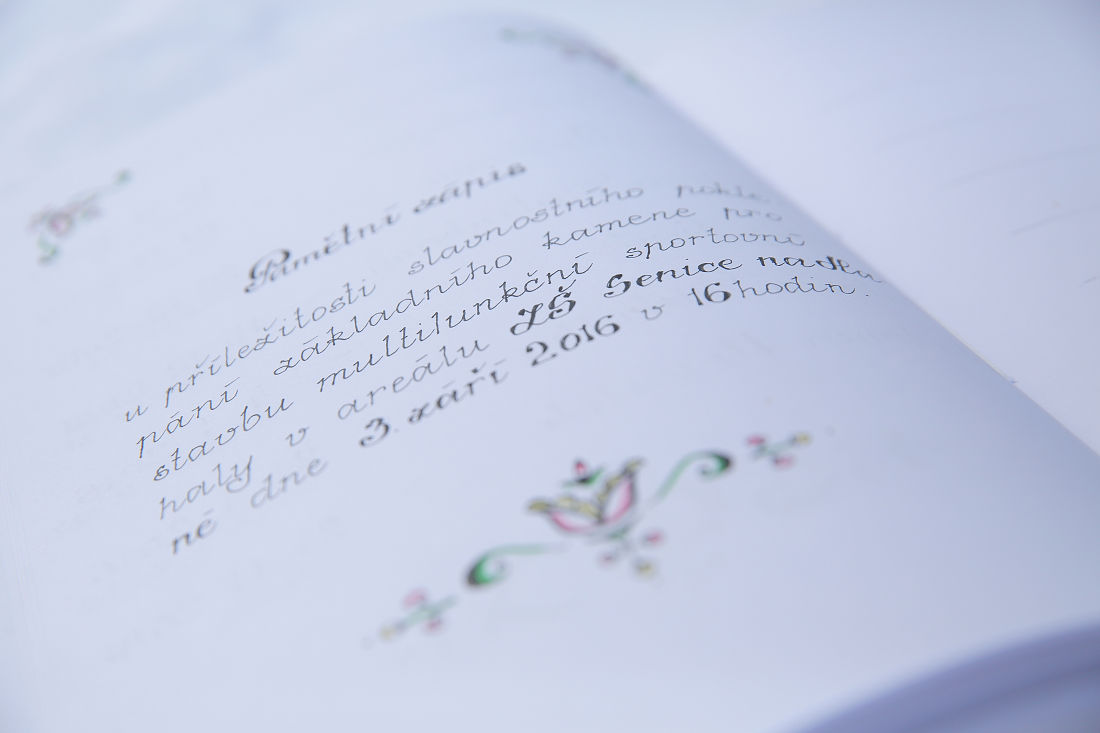 Pamětní zápis
u příležitosti slavnostního pokle
pání základního kamene pro
stavbu multilunkční sportovní
haly v areálu ZŠ Senice nadha
né dne 3. září 2016 v 16 hodin.